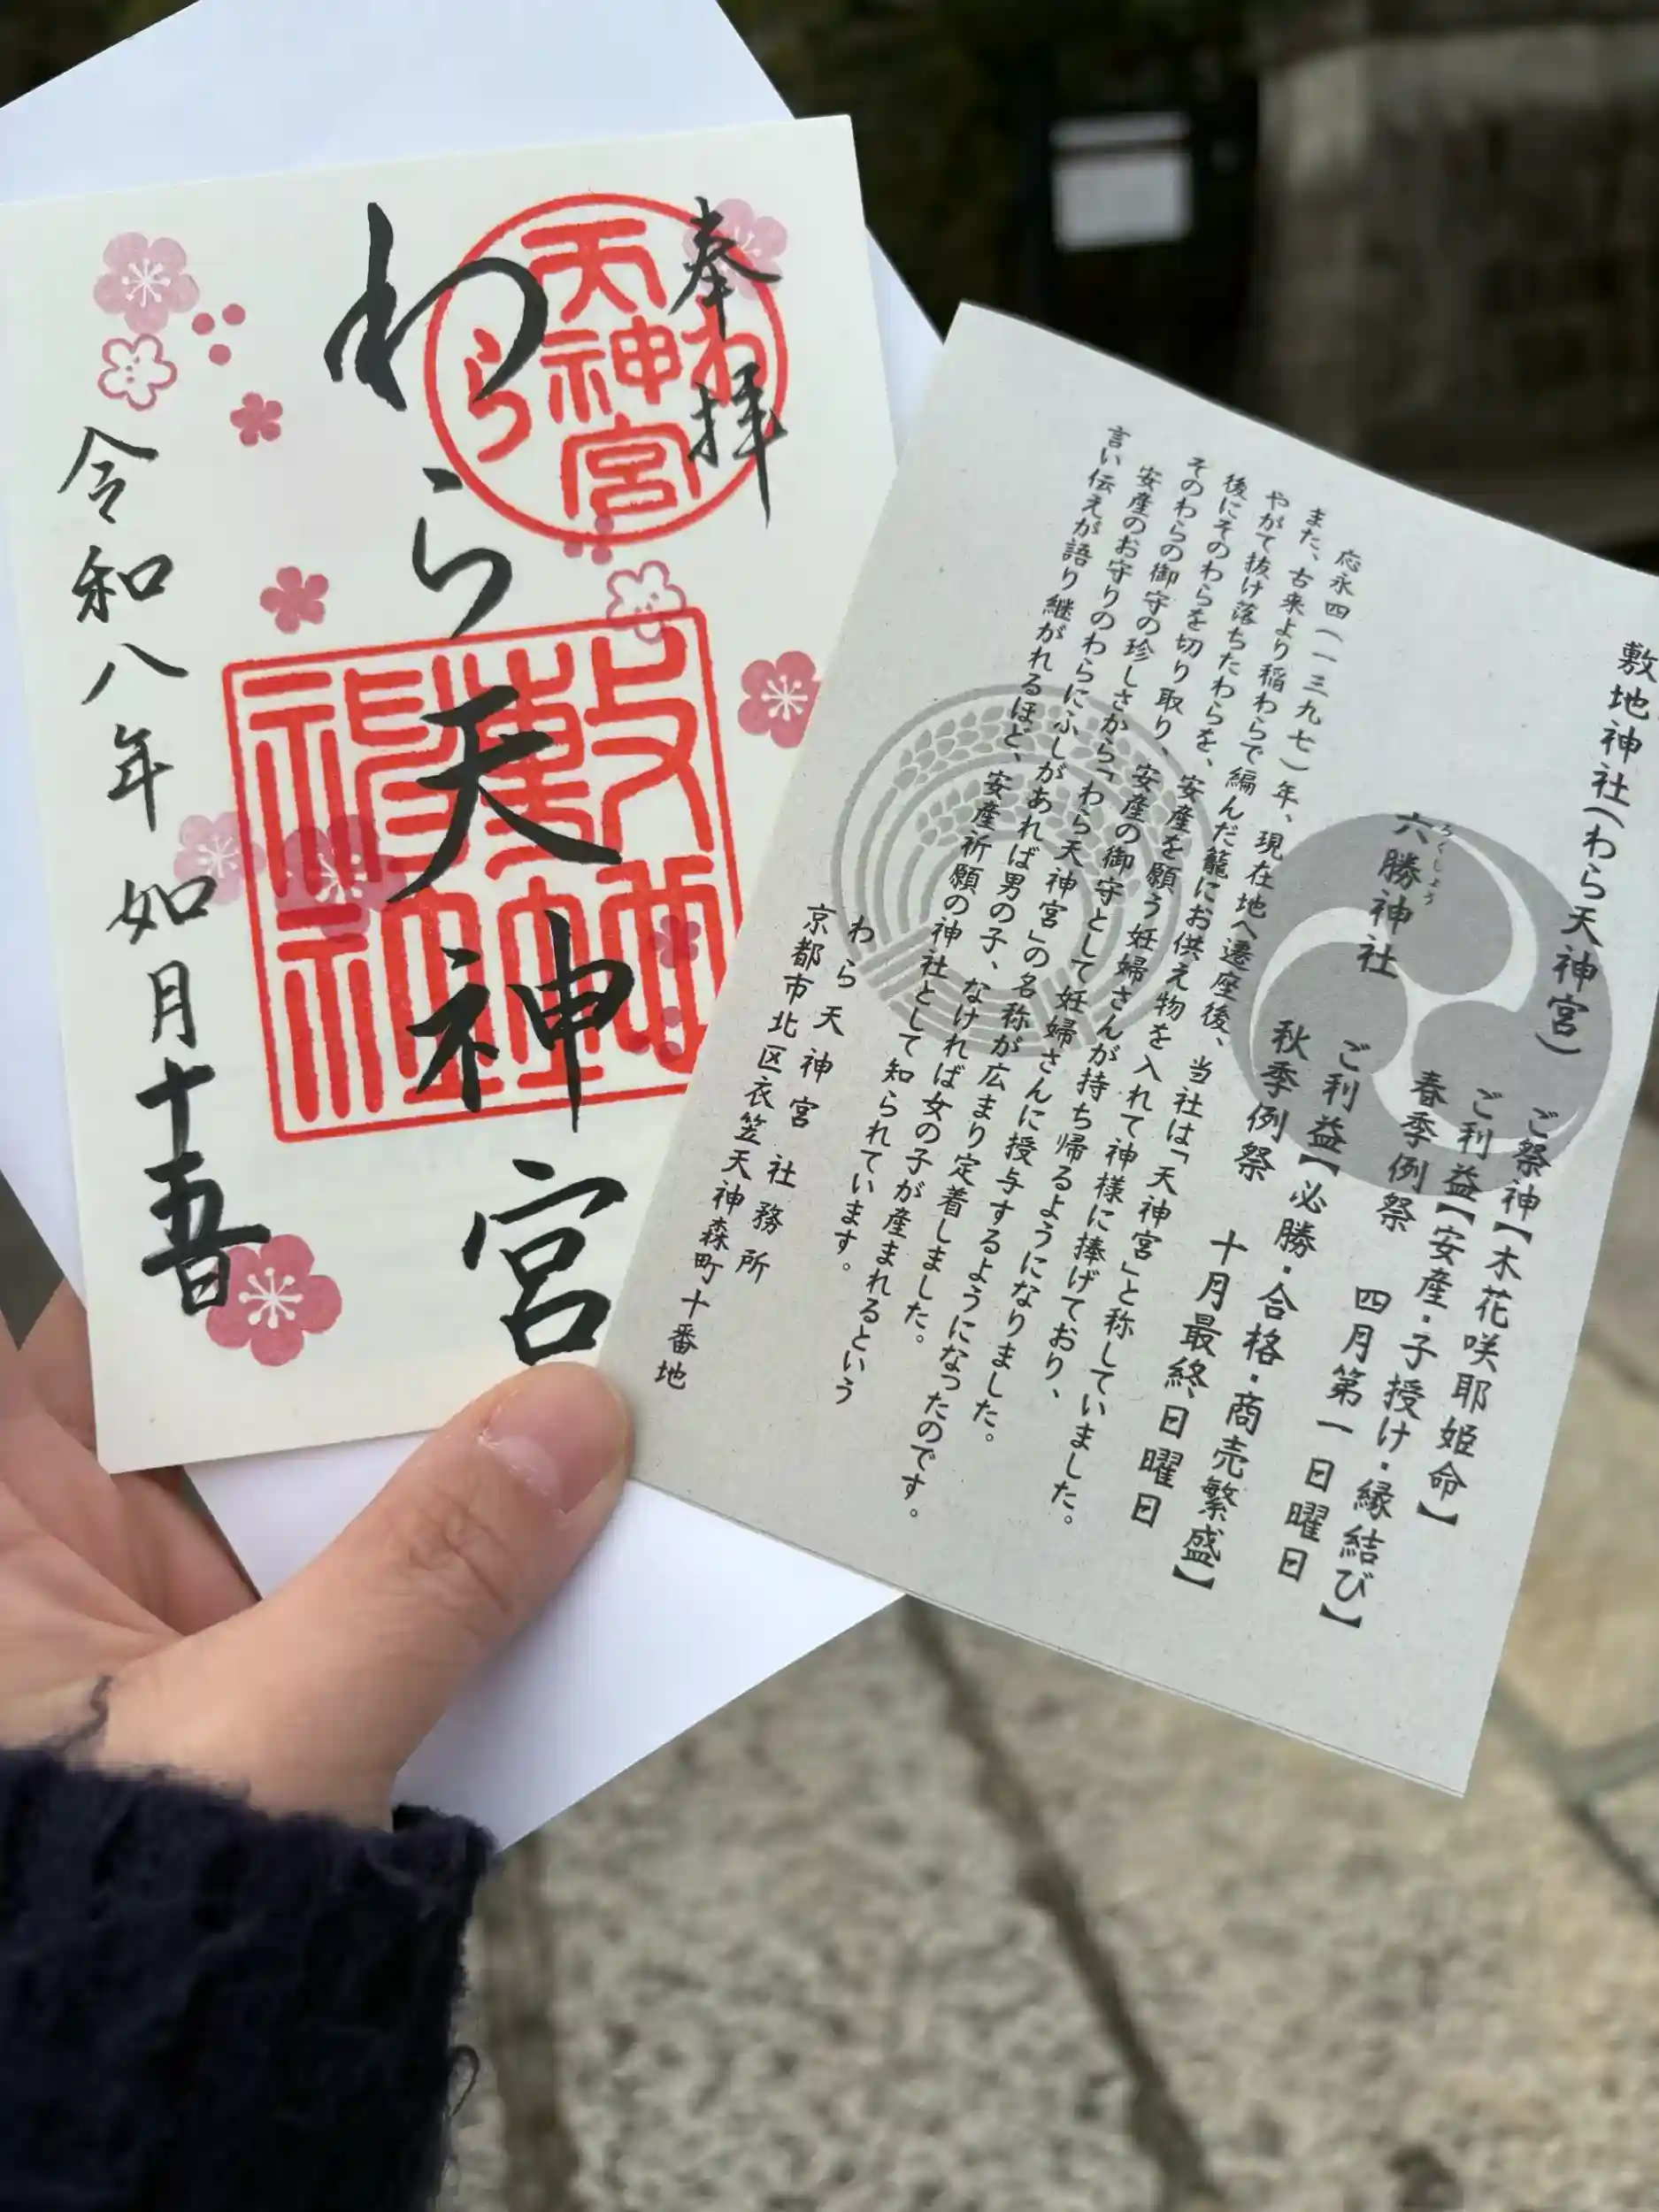 奉拝
わら天神宮
令和八年如月十五日
わら
天神宮
敷地神社(わら天神宮)
ご祭神【木花咲耶姫命】
ご利益【安産・子授け・縁結び】
春季例祭 四月第一日曜日
六勝神社
ろくしょう
ご利益【必勝・合格・商売繁盛】
秋季例祭 十月最終日曜日
応永四(一三九七)年、現在地へ遷座後、当社は「天神宮」と称していました。
また、古来より稲わらで編んだ籠にお供え物を入れて神様に捧げており、
やがて抜け落ちたわらを、安産を願う妊婦さんが持ち帰るようになりました。
後にそのわらを切り取り、安産の御守として妊婦さんに授与するようになり、
そのわらの御守の珍しさから「わら天神宮」の名称が広まり定着しました。
安産のお守りのわらにふしがあれば男の子、なければ女の子が産まれるという
言い伝えが語り継がれるほど、安産祈願の神社として知られています。
わら天神宮 社務所
京都市北区衣笠天神森町十番地